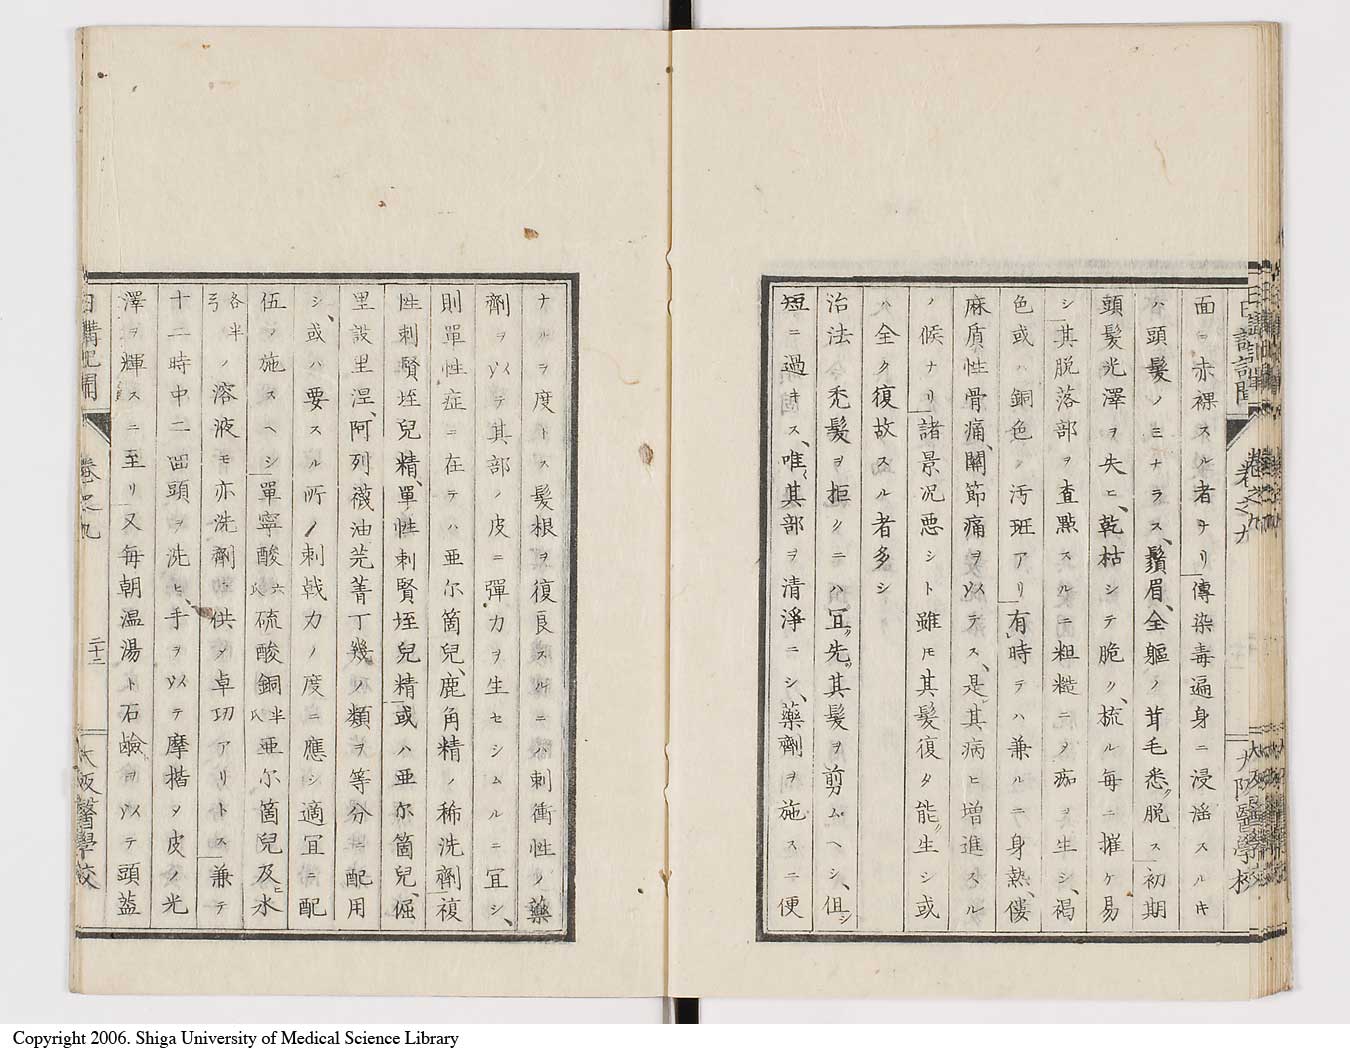 日講記聞
卷之九
大阪醫學校
面ニ赤裸スル者ナリ傳染毒遍身ニ浸滛スルキ
ハ頭髮ノミナラス、鬚眉、全軀ノ茸毛悉ク脱ス初期
頭髮光澤ヲ失ヒ、乾枯シテ脆ク、梳ル毎ニ摧ケ易
シ其脱落部ヲ査點スルニ粗糙ニ〆痂ヲ生シ、褐
色或ハ銅色ノ汚斑アリ有時テハ兼ルニ身熱、僂
麻質性骨痛、關節痛ヲ以テス、是其病ヒ増進スル
ノ候ナリ諸景況悪シト雖モ其髮復タ能ク生シ或
ハ全ク復故スル者多シ
治法 禿髮ヲ拒クニハ冝ク先ツ其髮ヲ剪ムヘシ、但シ
短ニ過キス、唯其部ヲ清淨ニシ、藥劑ヲ施スニ便
ナルヲ度トス髮根ヲ復良スルニハ刺衝性ノ藥
劑ヲ以テ其部ノ皮ニ彈力ヲ生セシムルニ冝シ、
則單性症ニ在テハ亜尓箇兒、鹿角精ノ稀洗劑複
性刺賢垤兒精、單性刺賢垤兒精或ハ亜尓箇兒、倔
里設里涅、阿列襪油芫菁丁幾ノ類ヲ等分ニ配用
シ、或ハ要スル所ノ刺戟力ノ度ニ應シ適冝ニ配
伍〆施スヘシ單寧酸六氏硫酸銅半氏亜尓箇兒及ヒ水
各半弓ノ溶液モ亦洗劑ニ供〆卓功アリトス兼テ
十二時中二回頭ヲ洗ヒ、手ヲ以テ摩揩〆皮ノ光
澤ヲ輝スニ至リ又毎朝温湯ト石鹼ヲ以テ頭葢
日講記聞
卷之九
二十二
大阪醫學校
Copyright 2006. Shiga University of Medical Science Library